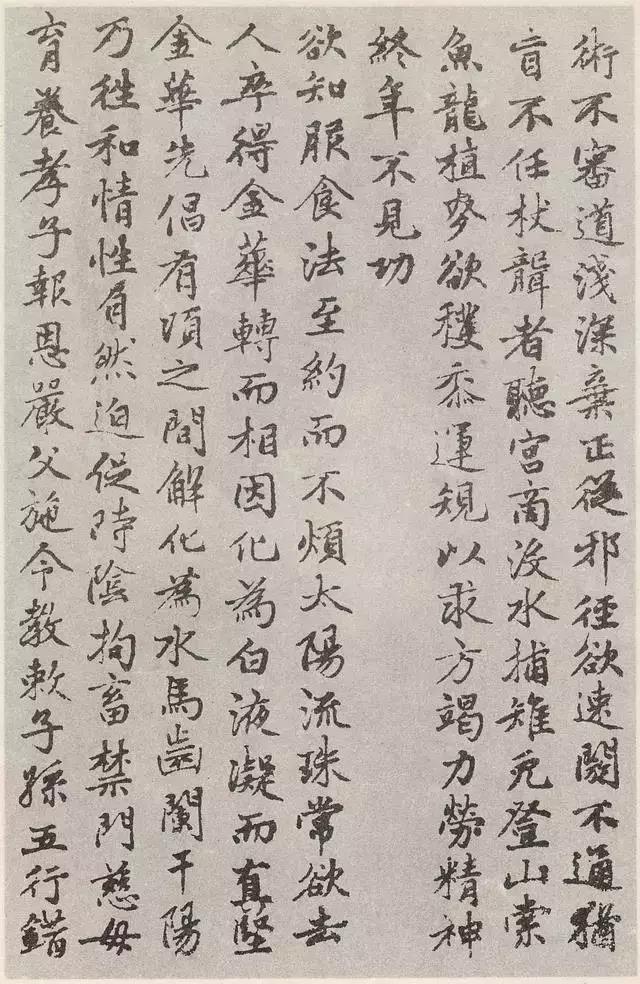 術不審道淺深棄正從邪徑欲速閼不通猶
盲不任杖聾者聽宮商沒水捕雉兔登山索
魚龍植麥欲穫黍運規以求方竭力勞精神
終年不見功
欲知服食法至約而不煩太陽流珠常欲去
人卒得金華轉而相因化為白液凝而真堅
金華先倡有頃之間解化為水馬齒闌干陽
乃往和情性自然迫促時陰拘畜禁門慈母
育養孝子報恩嚴父施令教敕子孫五行錯